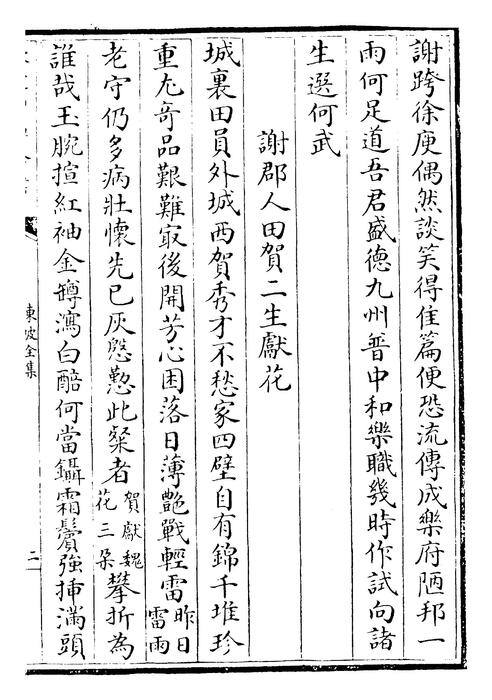 謝跨徐庾偶然談笑得佳篇便恐流傳成樂府陋邦一
雨何足道吾君盛德九州普中和樂職幾時作試向諸
生選何武
謝郡人田賀二生獻花
城裏田員外城西賀秀才不愁家四壁自有錦千堆珍
重尤奇品艱難㝡後開芳心困落日薄艶戰輕雷昨日雷雨
老守仍多病壯懷先已灰慇懃此粲者賀獻魏花三朶攀折為
誰哉玉腕揎紅袖金罇瀉白醅何當鑷霜鬢強揷滿頭
東坡全集
二